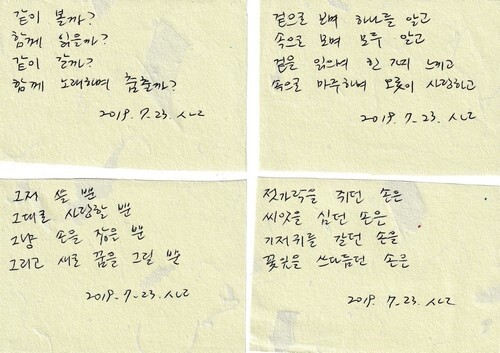 같이 볼까?
함께 읽을까?
같이 갈까?
함께 노래하며 춤출까?
2019. 7-23. ㅅㄴㄹ
겉으로 보며 하나를 알고
속으로 보며 모두 알고
겉을 읽으며 한 가지 느끼고
속으로 마주하며 오롯이 사랑하고
2019. 7-23. ㅅㄴㄹ
그저 쓸 뿐
그대로 사랑할 뿐
그냥 손을 잡을 뿐
그리고 새로 꿈을 그릴 뿐
2019. 7-23. ㅅㄴㄹ
젓가락을 쥐던 손은
씨앗을 심던 손은
기저귀를 갈던 손은
꽃잎을 쓰다듬던 손은
2019. 7-23. ㅅㄴㄹ